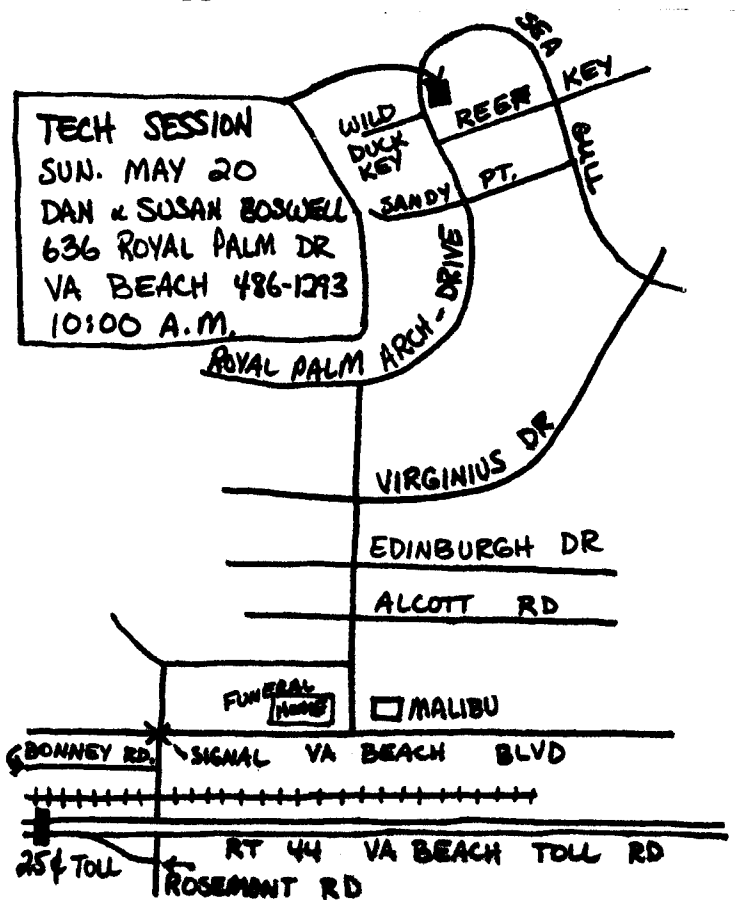 TECH SESSION
SUN. MAY 20
DAN & SUSAN BOSWELL
636 ROYAL PALM DR
VA BEACH 486-1293
10:00 A.M.
SEA
GULL
REEF KEY
WILD
DUCK
KEY
SANDY PT.
ROYAL PALM ARCH-DRIVE
VIRGINIUS DR
EDINBURGH DR
ALCOTT RD
FUNERAL
HOME
MALIBU
BONNEY RD.
SIGNAL VA BEACH BLVD
25¢ TOLL
RT 44 VA BEACH TOLL RD
ROSEMONT RD